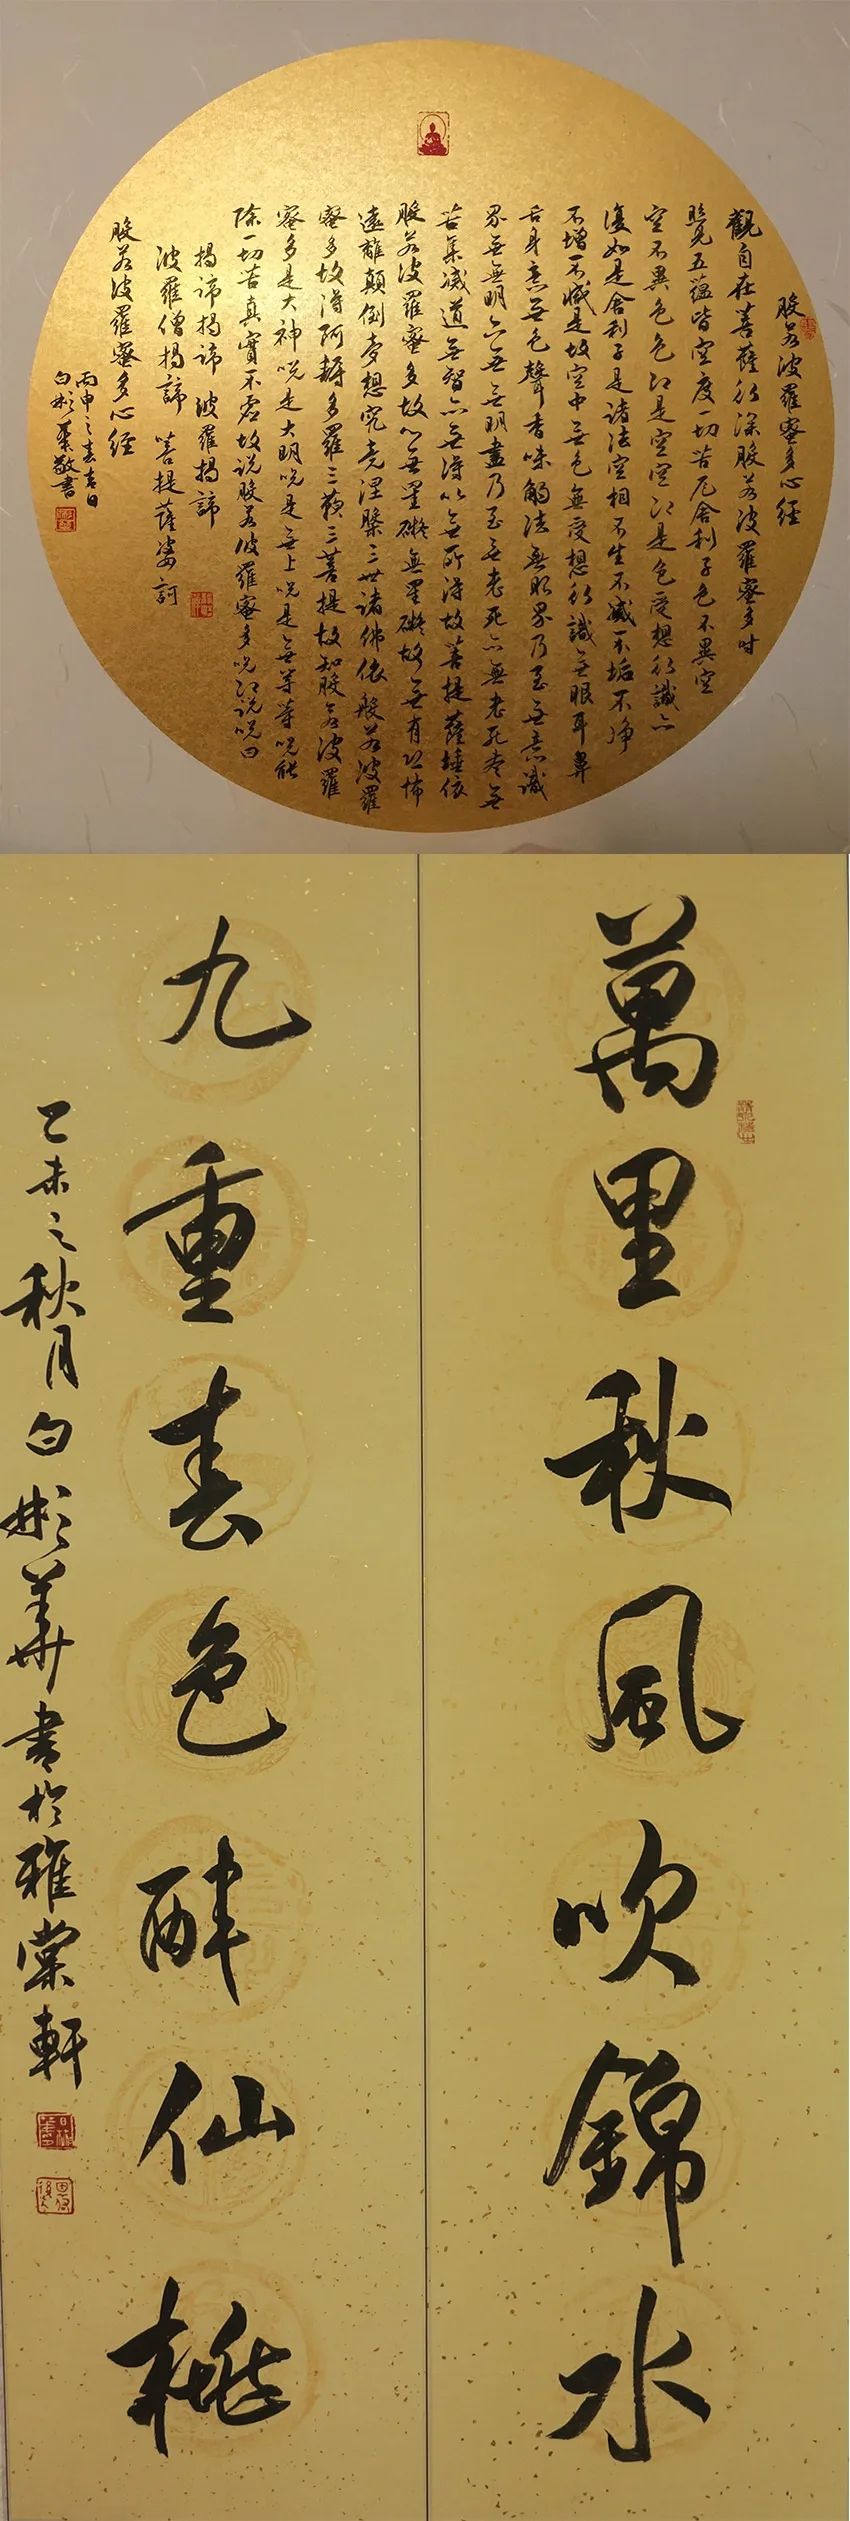 般若波羅蜜多心經
觀自在菩薩行深般若波羅蜜多時
照見五蘊皆空度一切苦厄舍利子色不異空
空不異色色即是空空即是色受想行識亦
復如是舍利子是諸法空相不生不滅不垢不净
不增不减是故空中無色無受想行識無眼耳鼻
舌身意無色聲香味觸法無眼界乃至無意識
界無無明亦無無明盡乃至無老死亦無老死盡無
苦集滅道無智亦無得以無所得故菩提薩埵依
般若波羅蜜多故心無罣礙無罣礙故無有恐怖
遠離顛倒夢想究竟涅槃三世諸佛依般若波羅
蜜多故得阿耨多羅三藐三菩提故知般若波羅
蜜多是大神咒是大明咒是無上咒是無等等咒能
除一切苦真實不虚故说般若波羅蜜多咒即说咒曰
揭諦揭諦 波羅揭諦
波羅僧揭諦 菩提薩婆訶
般若波羅蜜多心經
丙申之春吉日
白彬華敬書
萬里秋風吹錦水
九重春色醉仙桃
乙未之秋月白彬華書於雅棠軒